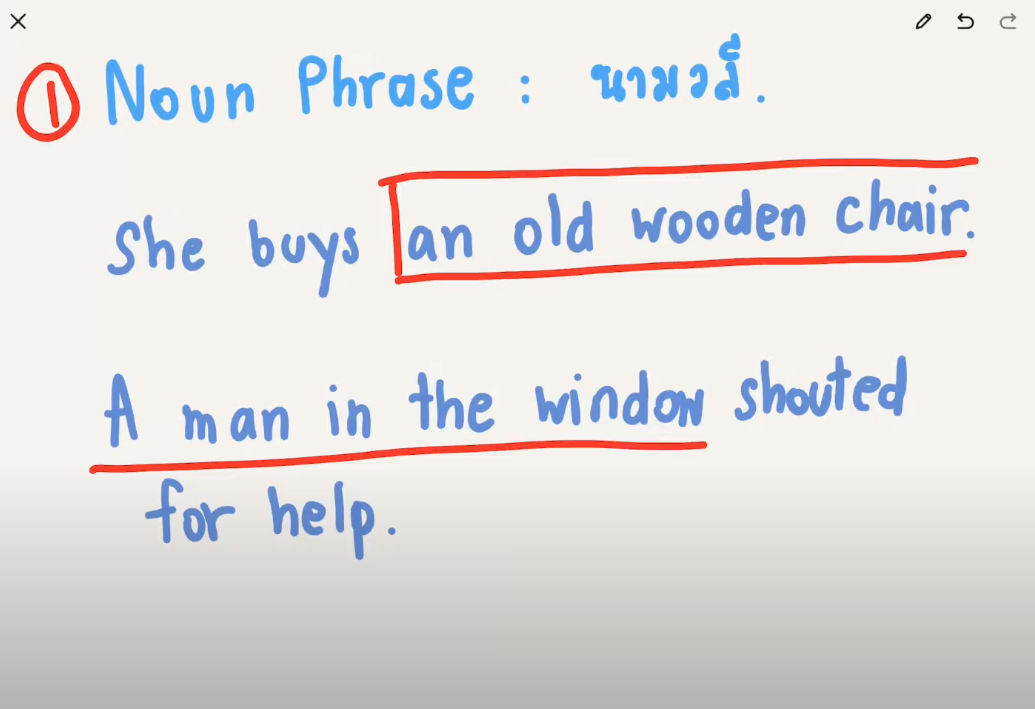 1 Noun Phrase : นามวลี.
She buys an old wooden chair.
A man in the window shouted
for help.